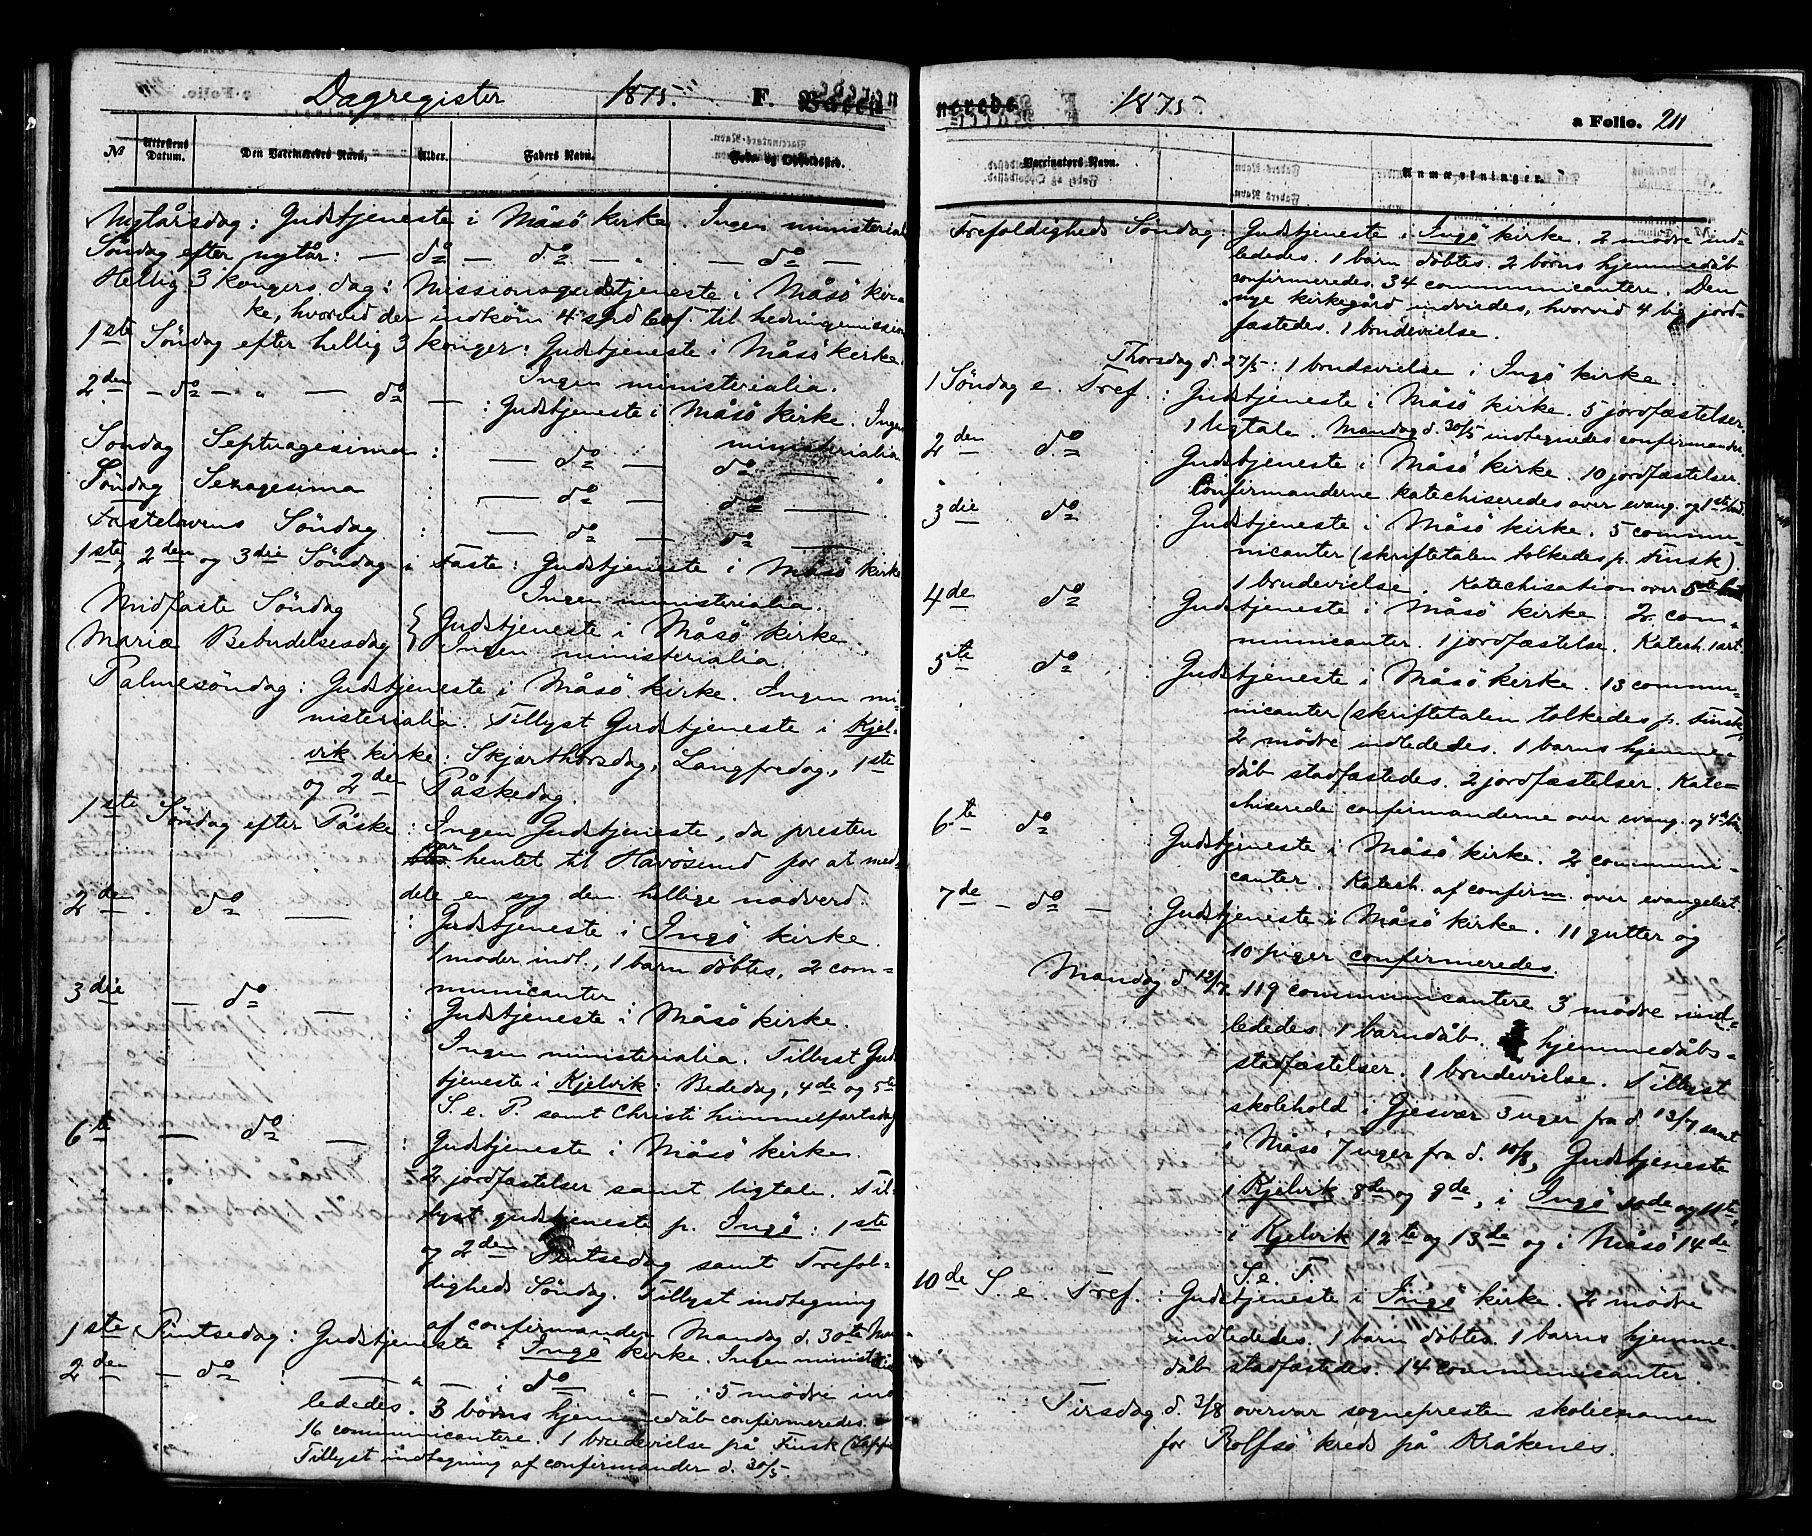 Dagregister 1875. F. Vacci
№ Attestens Datum. Den Vaccineredes Navn. Alder. Faders Navn. Føde og Opholdssted.
Nytårsdag: Gudstjeneste i Måsö kirke. Ingen ministerial
Söndag efter nytår: — do — do — " — do —
Hellig 3 kongers dag: Missionsgudstjeneste i Måsö kir-
ke, hvorved der indkom 4 spd til hedningemission
1ste Söndag efter hellig 3 konger: Gudstjeneste i Måsö kirke.
Ingen ministerialia.
2den — do — " — do — : Gudstjeneste i Måsö kirke. Ingen
ministerialia.
Söndag Septuagesima : — do — do —
Söndag Sexagesima : — do — do —
Fastelavens Söndag : — do — do —
1ste, 2den og 3die Söndag i Faste: Gudstjeneste i Måsö kirke
Ingen ministerialia.
Midfaste Söndag } Gudstjeneste i Måsö kirke.
Mariæ Bebudelsesdag } Ingen ministerialia.
Palmesöndag: Gudstjeneste i Måsö kirke. Ingen mi-
nisterialia. Tillyst Gudstjeneste i Kjel-
vik kirke: Skjærthorsdag, Langfredag, 1ste
og 2den Påskedag.
1ste Söndag efter Påske: Ingen Gudstjeneste, da presten
var hentet til Havösund for at med-
dele en syg den hellige nadverd.
2den. do — : Gudstjeneste i Ingö kirke.
1 moder indl., 1 barn döbtes, 2 com-
municanter
3die — do — : Gudstjeneste i Måsö kirke.
Ingen ministerialia. Tillyst Gud
tjeneste i Kjelvik: Bededag, 4de og 5te
S. e. P. samt Christi himmelfartsdag
6te — do — : Gudstjeneste i Måsö kirke.
2 jordfæstelser samt ligtale. Til-
lyst gudstjeneste p. Ingö: 1ste
og 2den Pintsedag samt Trefol-
digheds Söndag. Tillyst indtegning
af confirmander Mandag d. 30te Mai
1ste Pintsedag: Gudstjeneste i Ingö kirke. Ingen ministerialia
2den — do — : — " — i do — " — : 5 mödre ind
lededes. 3 börns hjemmedåb confirmeredes.
16 communicantere. 1 brudevielse på Finsk (Lapp
Tillyst indtegning af confirmander d. 30/5.
nerede. 1875 a Folio. 211
Vaccinators Navn. Anmærkninger.
Trefoldigheds Söndag: Gudstjeneste i Ingö kirke. 2 mödre ind-
lededes. 1 barn döbtes. 2 börns hjemmedåb
confirmeredes. 34 communicantere. Den
nye kirkegård indviedes, hvorved 4 lig jord-
fæstedes. 1 brudevielse.
Thorsdag d. 27/5: 1 brudevielse i Ingö kirke.
1 Söndag e. Tref.: Gudstjeneste i Måsö kirke. 5 jordfæstelser.
1 ligtale. Mandag d. 30/5 indtegnedes confirmander.
2den do : Gudstjeneste i Måsö kirke. 10 jordfæstelser.
Confirmanderne katechiseredes over evang. og 1ste bud.
3die do : Gudstjeneste i Måsö kirke. 5 commu-
nicanter (skriftetalen tolkedes p. Finsk).
1 brudevielse. Katechisation over 5te bud
4de do : Gudstjeneste i Måsö kirke 2 com-
municanter. 1 jordfæstelse. Katech. 1 art.
5te do : Gudstjeneste i Måsö kirke. 13 commu-
nicanter (skriftetalen tolkedes p. Finsk)
2 mödre indlededes. 1 barns hjemme-
dåb stadfæstedes. 2 jordfæstelser. Kate-
chiserede confirmanderne over evang. og 4de
6te do Gudstjeneste i Måsö kirke. 2 communi-
canter. Katech. af confirm. over evangeliet
7de — do — : Gudstjeneste i Måsö kirke. 11 gutter og
10 piger confirmeredes.
Mandag d. 12/7 119 communicantere 3 mödre ind-
lededes. 1 barndåb. hjemmedåbs-
stadfæstelser. 1 brudevielse. Tillyst
skolehold i Gjesvær 3 uger fra d. 13/7 samt
i Måsö 7 uger fra d. 10/8, Gudstjeneste
i Kjelvik 8de og 9de, i Ingö 10de og 11te,
i Kjelvik 12te og 13de og i Måsö 14de
S. e. T.
10de S. e. Tref. : Gudstjeneste i Ingö kirke. 2 mödre
indlededes. 1 barn döbtes. 1 barns hjemme-
dåb stadfæstedes. 14 communicanter.
Tirsdag d. 3/8 overvar sognepresten skolexamen
for Rolfsö kreds på Kråkenes.